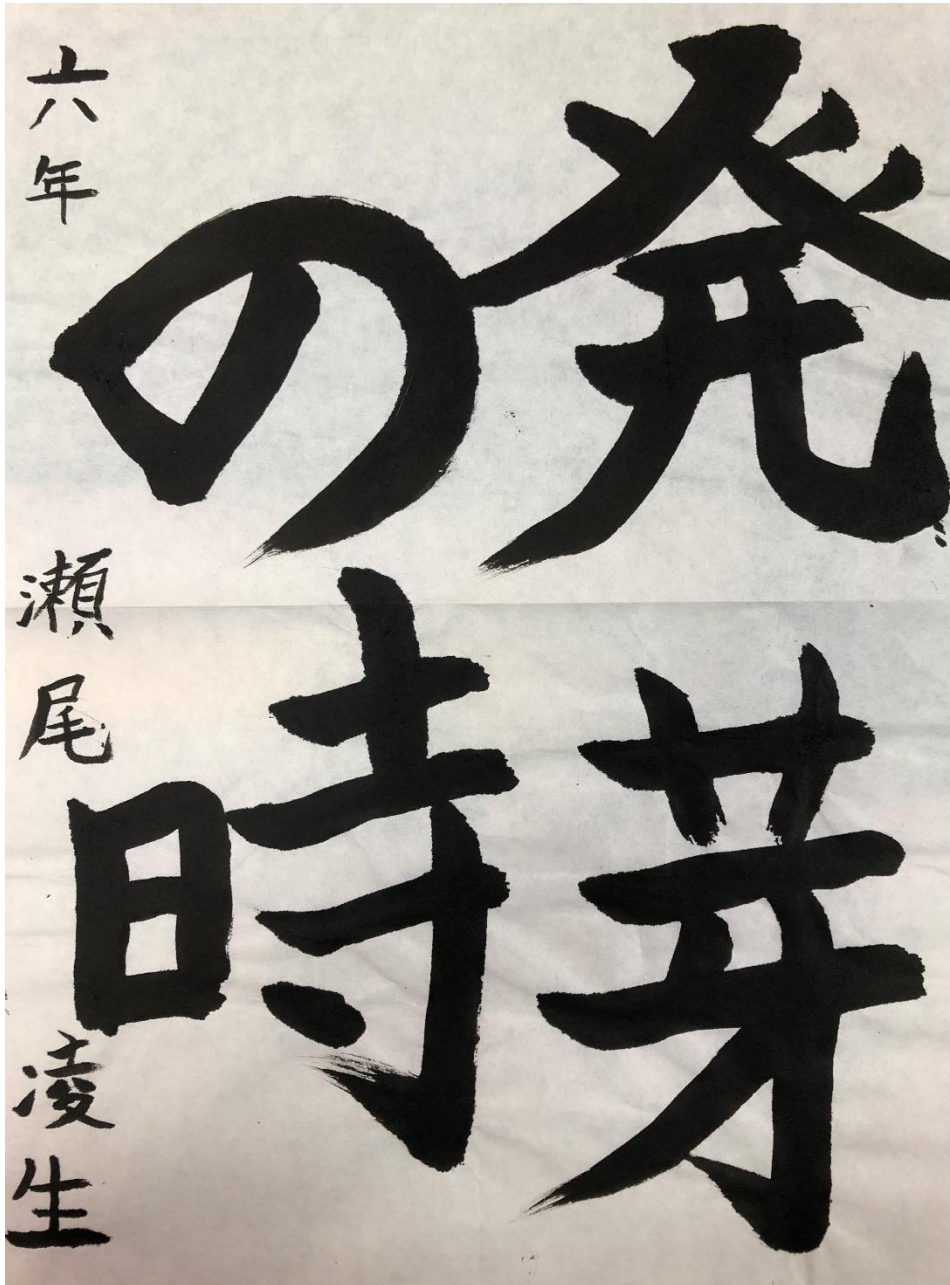 発芽
の時
六年 瀬尾凌生